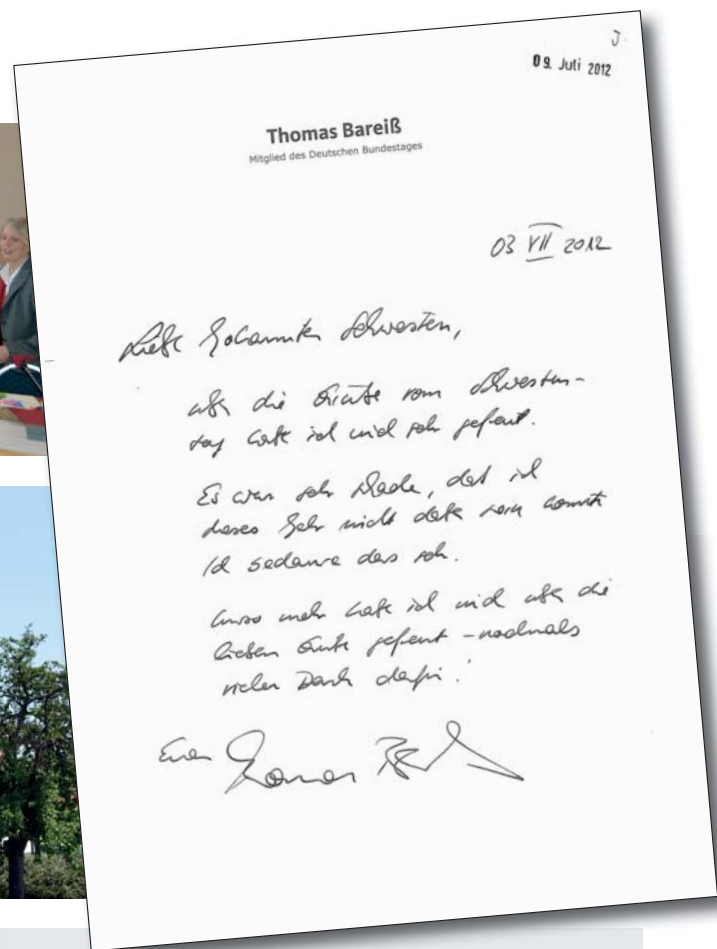 J.
09. Juli 2012
Thomas Bareiß
Mitglied des Deutschen Bundestages
03 VII 2012
Liebe Johanniter Schwestern,
über die Grüße vom Schwestern-
tag habe ich mich sehr gefreut.
Es war sehr schade, daß ich
dieses Jahr nicht dabei sein konnte
Ich bedaure das sehr.
Umso mehr habe ich mich über die
lieben Grüße gefreut – nochmals
vielen Dank dafür!
Euer Thomas